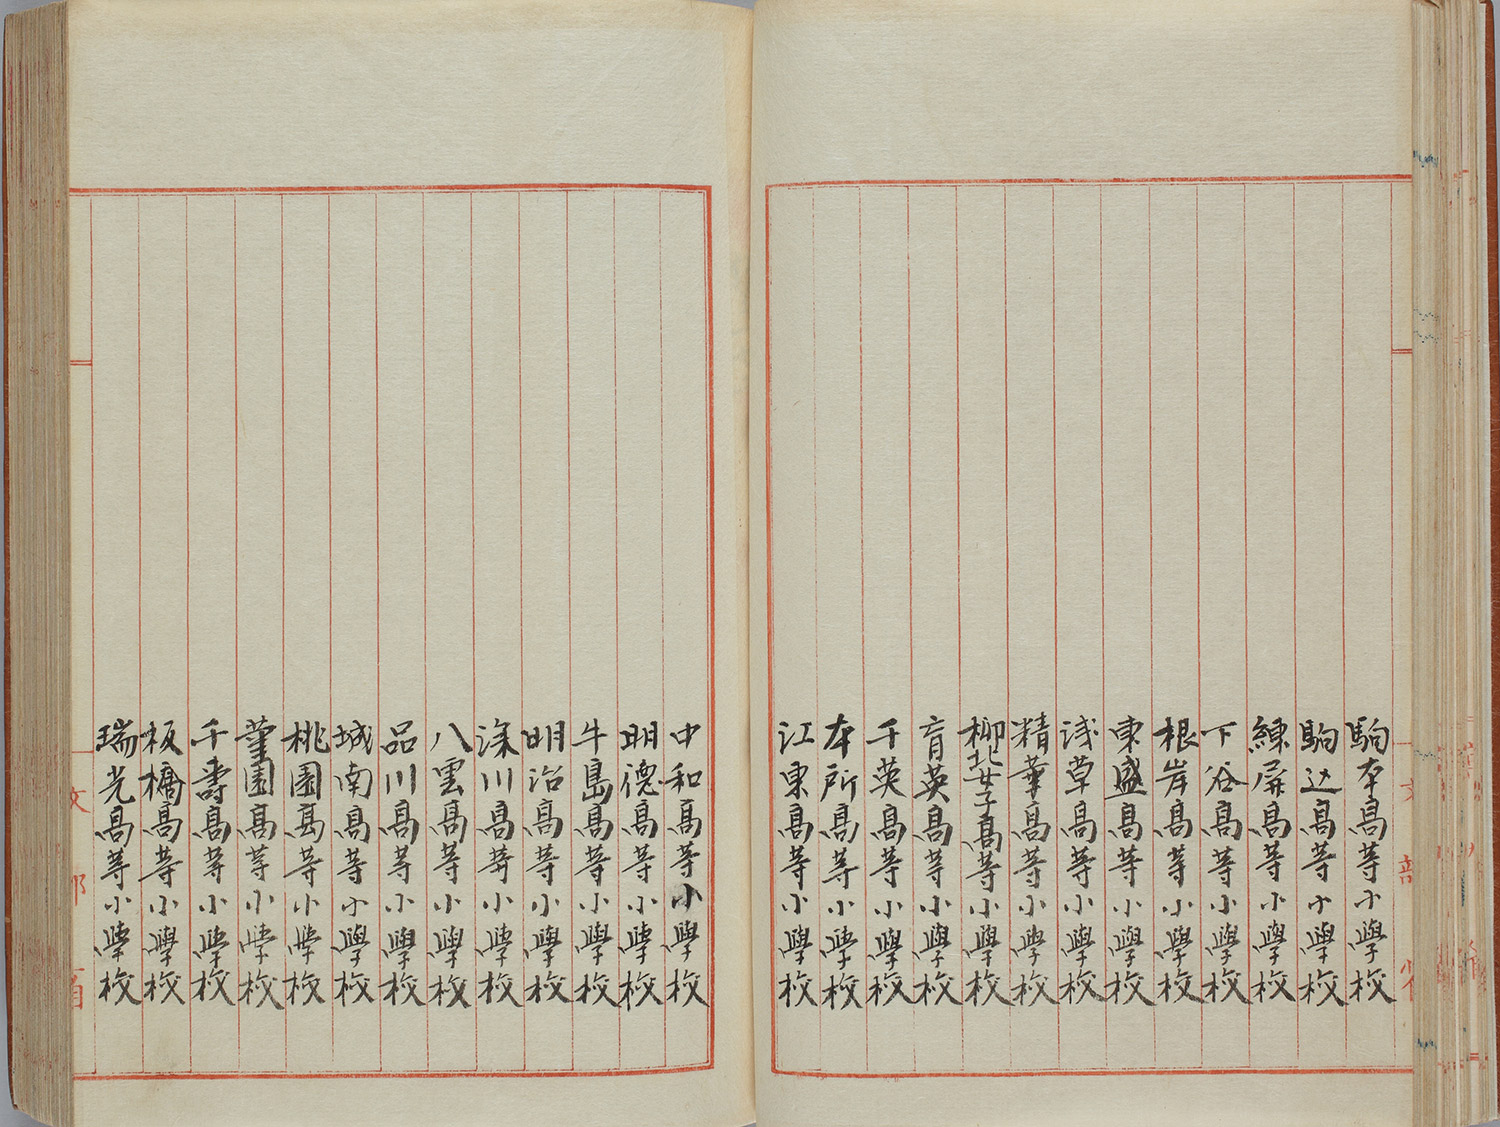 駒本高等小學校
駒込高等小學校
練屏高等小學校
下谷高等小學校
根岸高等小學校
東盛高等小學校
浅草高等小學校
精華高等小學校
柳北女子高等小學校
育英高等小學校
千英高等小學校
本所高等小學校
江東高等小學校
中和高等小學校
明德高等小學校
牛島高等小學校
明治高等小學校
深川高等小學校
八雲高等小學校
品川高等小學校
城南高等小學校
桃園高等小學校
菫園高等小學校
千壽高等小學校
板橋高等小學校
瑞光高等小學校
文部省